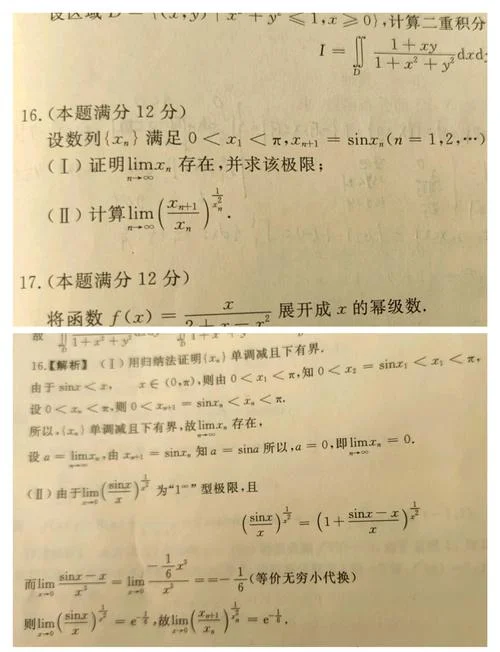 设区域 D = {(x,y) | x² + y² ≤ 1, x ≥ 0},计算二重积分
I = ∬_D (1 + xy)/(1 + x² + y²) dxdy
16.(本题满分 12 分)
设数列{xₙ} 满足 0 < x₁ < π, xₙ₊₁ = sinxₙ(n = 1,2,…)
(Ⅰ) 证明 lim_{n→∞} xₙ 存在,并求该极限;
(Ⅱ) 计算 lim_{n→∞} (xₙ₊₁/xₙ)^{1/xₙ²}.
17.(本题满分 12 分)
将函数 f(x) = x/(2 + x − x²) 展开成 x 的幂级数.
16.【解析】 (Ⅰ) 用归纳法证明{xₙ} 单调减且下有界.
由于 sinx < x, x ∈ (0,π),则由 0 < x₁ < π,知 0 < x₂ = sinx₁ < x₁ < π,
设 0 < xₙ < π,则 0 < xₙ₊₁ = sinxₙ < xₙ < π.
所以,{xₙ} 单调减且下有界,故 lim_{n→∞} xₙ 存在,
设 a = lim_{n→∞} xₙ,由 xₙ₊₁ = sinxₙ 知 a = sina 所以,a = 0,即 lim_{n→∞} xₙ = 0.
(Ⅱ) 由于 lim_{x→0} (sinx/x)^{1/x²} 为“1^∞”型极限,且
(sinx/x)^{1/x²} = (1 + (sinx − x)/x)^{1/x²}
而 lim_{x→0} (sinx − x)/x³ = lim_{x→0} (−1/6 x³)/x³ ==− 1/6 (等价无穷小代换)
则 lim_{x→0} (sinx/x)^{1/x²} = e^{−1/6},故 lim_{n→∞} (xₙ₊₁/xₙ)^{1/xₙ²} = e^{−1/6}.